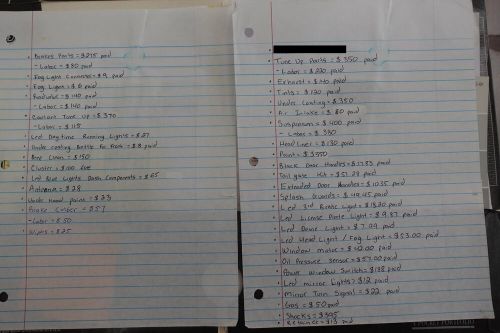 • Brakes Parts = $275 paid
- Labor = $80 paid
• Fog Light Connector = $9 paid
• Fog Lights = $6 paid
• Radiator = $140 paid
- Labor = $140 paid
• Coolant Tune Up = $370
- Labor = $115
• Led Daytime Running Lights = $27
• Under coating Bottle = $8 paid
• Cluster = $100
• Led Blue Lights Dash Components = $65
• Antenna = $28
• Under Hood Paint = $23
• Brake Caliper = $57
- Labor = $50
• Wipers = $25
• Tune Up Parts = $350 paid
- Labor = $220 paid
• Exhaust = $140 paid
• Tints = $120 paid
• Under Coating = $350
• Air Intake = $80 paid
• Suspension = $400 paid
- Labor = $380
• Head Liner = $130 paid
• Paint = $3550
• Black Door Handles = paid
• Tail gate Kit = $51.29 paid
• Extended Door Handles = paid
• Splash Guards = $49.45 paid
• Led 3rd Brake Light = $18.20 paid
• Led License Plate Light = paid
• Led Dome Light = $7.09 paid
• Led Head Light / Fog Light = $53.00 paid
• Window motor = paid
• Oil Pressure Sensor = $57.00 paid
• Power Window Switch = $188 paid
• Led mirror Lights = $12 paid
• Mirror Turn Signal = $22 paid
• Gas = $50 paid
• Shocks = $395
• Retainer = $13 paid